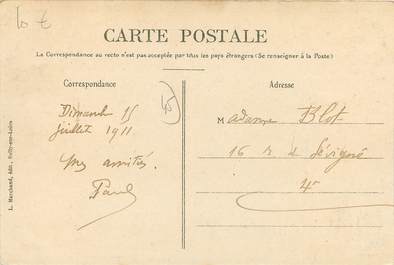 10 €
CARTE POSTALE
La Correspondance au recto n'est pas acceptée par tous les pays étrangers (Se renseigner à la Poste)
Correspondance
Dimanche 15
juillet 1911
Mes amitiés.
Paul
45
Adresse
Madame Blot
16 r de Sévigné
4e
L. Marchand, édit., Sully-sur-Loire